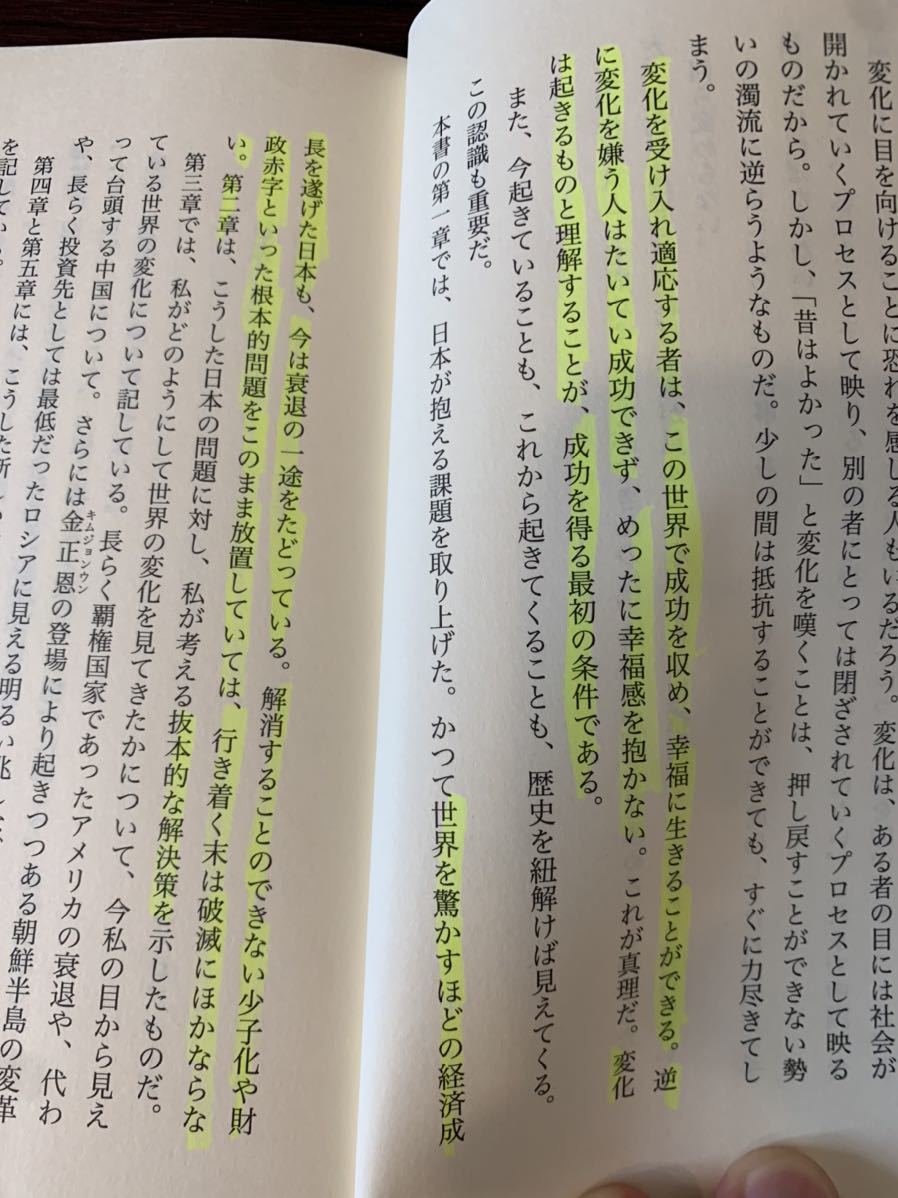 変化に目を向けることに恐れを感じる人もいるだろう。変化は、ある者の目には社会が
開かれていくプロセスとして映り、別の者にとっては閉ざされていくプロセスとして映る
ものだから。しかし、「昔はよかった」と変化を嘆くことは、押し戻すことができない勢
いの濁流に逆らうようなものだ。少しの間は抵抗することができても、すぐに力尽きてし
まう。
変化を受け入れ適応する者は、この世界で成功を収め、幸福に生きることができる。逆
に変化を嫌う人はたいてい成功できず、めったに幸福感を抱かない。これが真理だ。変化
は起きるものと理解することが、成功を得る最初の条件である。
また、今起きていることも、これから起きてくることも、歴史を紐解けば見えてくる。
この認識も重要だ。
本書の第一章では、日本が抱える課題を取り上げた。かつて世界を驚かすほどの経済成
長を遂げた日本も、今は衰退の一途をたどっている。解消することのできない少子化や財
政赤字といった根本的問題をこのまま放置していては、行き着く末は破滅にほかならな
い。第二章は、こうした日本の問題に対し、私が考える抜本的な解決策を示したものだ。
第三章では、私がどのようにして世界の変化を見てきたかについて、今私の目から見え
ている世界の変化について記している。長らく覇権国家であったアメリカの衰退や、代わ
って台頭する中国について。さらには金正恩の登場により起きつつある朝鮮半島の変革
キムジョンウン
や、長らく投資先としては最低だったロシアに見える明るい兆し
第四章と第五章には、こうした
を記している。